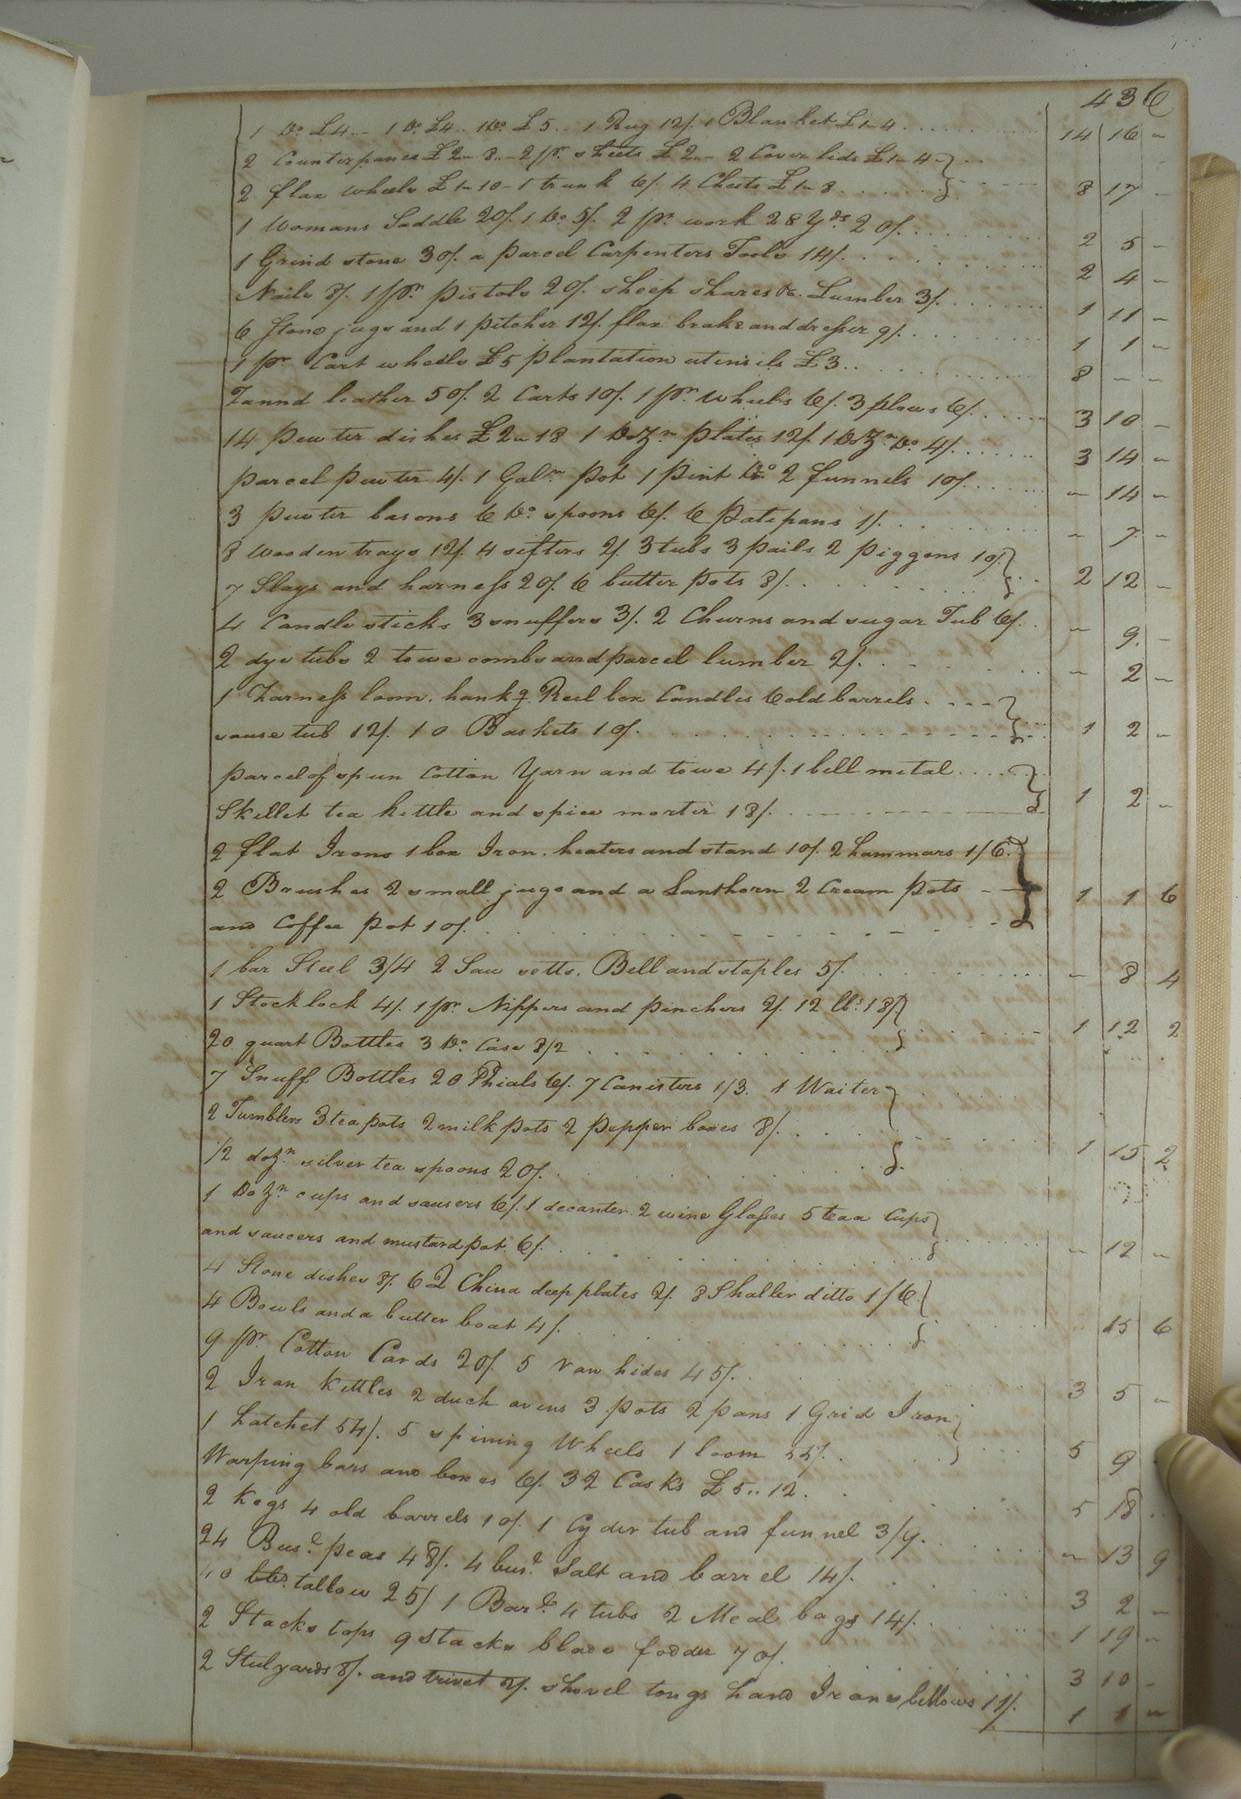 436
1 Do. £4.. 1 Do. £4.. 1 Do. £5.. 1 Rug 12/. 1 Blanket £1-4 14 16 -
2 Counterpanes £2-8.. 2 pr. sheets £2.- 2 Coverlids £1-4
2 flax wheels £1-10- 1 trunk 6/. 4 Chests £1-8 8 17 -
1 Womans Saddle 20/. 1 Do. 5/. 2 pr. work 28 Yds 20/. 2 5 -
1 Grind stone 30/. a parcel Carpenters Tools 14/. 2 4 -
Nails 8/. 1 pr. pistols 20/. sheep shares &c. Lumber 3/. 1 11 -
6 Stone jugs and 1 pitcher 12/. flax brake and dresser 9/. 1 1 -
1 pr. Cart wheels £5 plantation utensils £3.. 8 - -
Tannd leather 50/. 2 Carts 10/. 1 pr. wheels 6/. 3 plows 6/. 3 10 -
14 pewter dishes £2-18 1 Dozn. plates 12/. 1 Dozn. Do. 4/. 3 14 -
parcel pewter 4/. 1 Galn. pot 1 pint Do. 2 funnels 10/. - 14 -
3 pewter basons 6 Do. spoons 6/. 6 patepans 1/. - 7 -
8 wooden trays 12/. 4 sifters 2/. 3 tubs 3 pails 2 piggens 10/.
7 Slays and harness 20/. 6 butter pots 8/. 2 12 -
4 Candlesticks 3 snuffers 3/. 2 Churns and sugar Tub 6/. - 9 -
2 dye tubs 2 towe combs and parcel lumber 2/. - 2 -
1 Harness loom. hank & Reel box Candles 6 old barrels
souse tub 12/. 10 Baskets 10/. 1 2 -
parcel of spun Cotton Yarn and towe 4/. 1 bell metal
Skillet tea kettle and spice morter 18/. 1 2 -
2 flat Irons 1 box Iron. heaters and stand 10/. 2 hammars 1/6.
2 Brushes 2 small jugs and a Lanthorn 2 Cream pots
and Coffee pot 10/. 1 1 6
1 bar Steel 3/4 2 Saw setts. Bell and staples 5/. - 8 4
1 Stocklock 4/. 1 pr. Nippers and pinchers 2/. 12 lbs. 18/
20 quart Bottles 3 Do. Case 8/2 1 12 2
7 Snuff Bottles 20 Phials 6/. 7 Canisters 1/3. 1 Waiter
2 Tumblers 3 tea pots 2 milk pots 2 pepper boxes 8/.
1/2 dozn. silver tea spoons 20/. 1 15 2
1 Dozn. cups and sausers 6/. 1 decanter. 2 wine Glasses 5 teaa Cups
and saucers and mustard pot 6/. - 12 -
4 Stone dishes 8/. 6 China deep plates 2/. 8 Shaller ditto 1/6
4 Bowls and a butter boat 4/. 15 6
9 pr. Cotton Cards 20/. 5 raw hides 45/. 3 5 -
2 Iron kettles 2 duch ovens 3 pots 2 pans 1 Grid Iron
1 hatchet 54/. 5 spinning Wheels 1 loom 55/. 5 9
Warping bars and boxes 6/. 32 Casks £5..12. 5 18 ..
2 kegs 4 old barrels 10/. 1 Cyder tub and funnel 3/9. - 13 9
24 Busl. peas 48/. 4 busl. Salt and barrel 14/. 3 2 -
tallow 25/ 1 Barl. 4 tubs 2 Meal bags 14/. 1 19 -
2 Stacks tops 9 stacks blade fodder 70/. 3 10 -
2 Stilyards 8/. and trivet 2/. shovel tongs hand Irons bellows 11/. 1 1 -